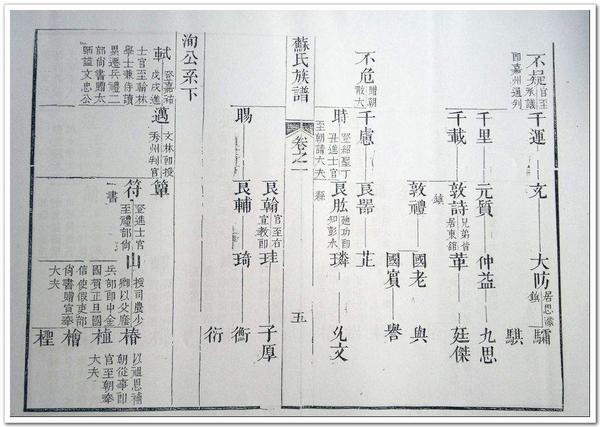 不疑 官至承議郎嘉州通判 千運 文 大昉 居思濛鎮 驌
騏
千里 元質 仲益 九思
千載 敦詩 兄弟皆居東館鎮 革 廷傑
敦禮 國老 與
國賓 譽
不危 贈朝散大 千慮 良器 芷
時 登紹聖丁丑進士官至朝請大夫 良肱 迪功郎知彭水縣 璘 允文
蘇氏族譜 卷之一 五
良翰 官至右宣教郎 珪 子厚
賜 良輔 琦 衡
衍
洵公系下
軾 登嘉祐戊戌進士官至翰林學士兼侍讀累遷兵禮部尚書贈太師諡文忠公 邁 文林郎授秀州判官 簞
符 登進士官至禮部尚書 山 授司農少卿以父蔭兵部郎中金國賀正旦國信使假吏部尚書贈宣奉大夫 椿 以祖恩補朝從事郎官至朝奉大夫
植
檜
檉